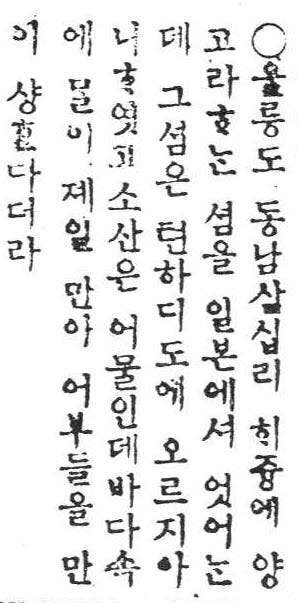 ○울릉도 동남삼십리 ᄒᆡ즁에 양
고라ᄒᆞᄂᆞᆫ 셤을 일본에셔 엇어는
데 그 셤은 텬하디도에 오르지아
니ᄒᆞ엿고 소산은 어물인데 바다속
에 물이 제일 만아 어부들을 만
이 샹ᄒᆞᆫ다더라